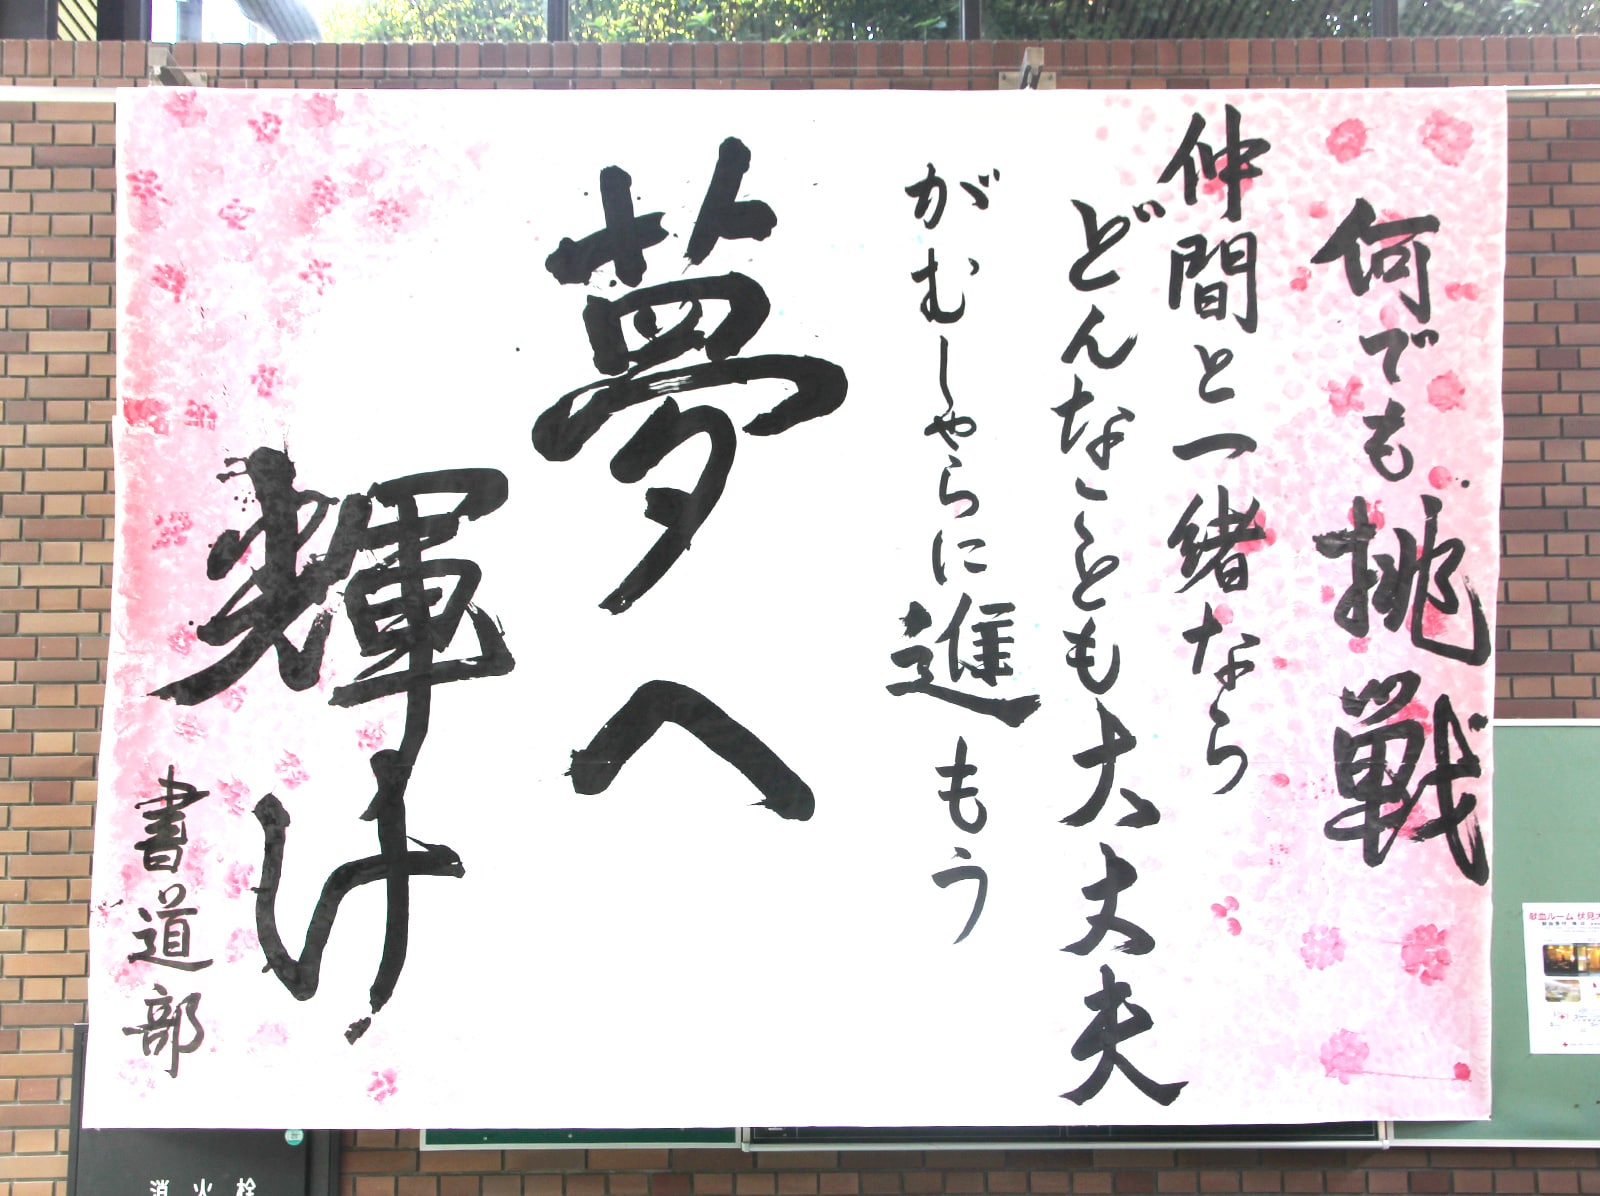 何でも挑戦
仲間と一緒なら
どんなことも大丈夫
がむしゃらに進もう
夢へ
輝け
書道部
消火栓
献血ルーム 伏見